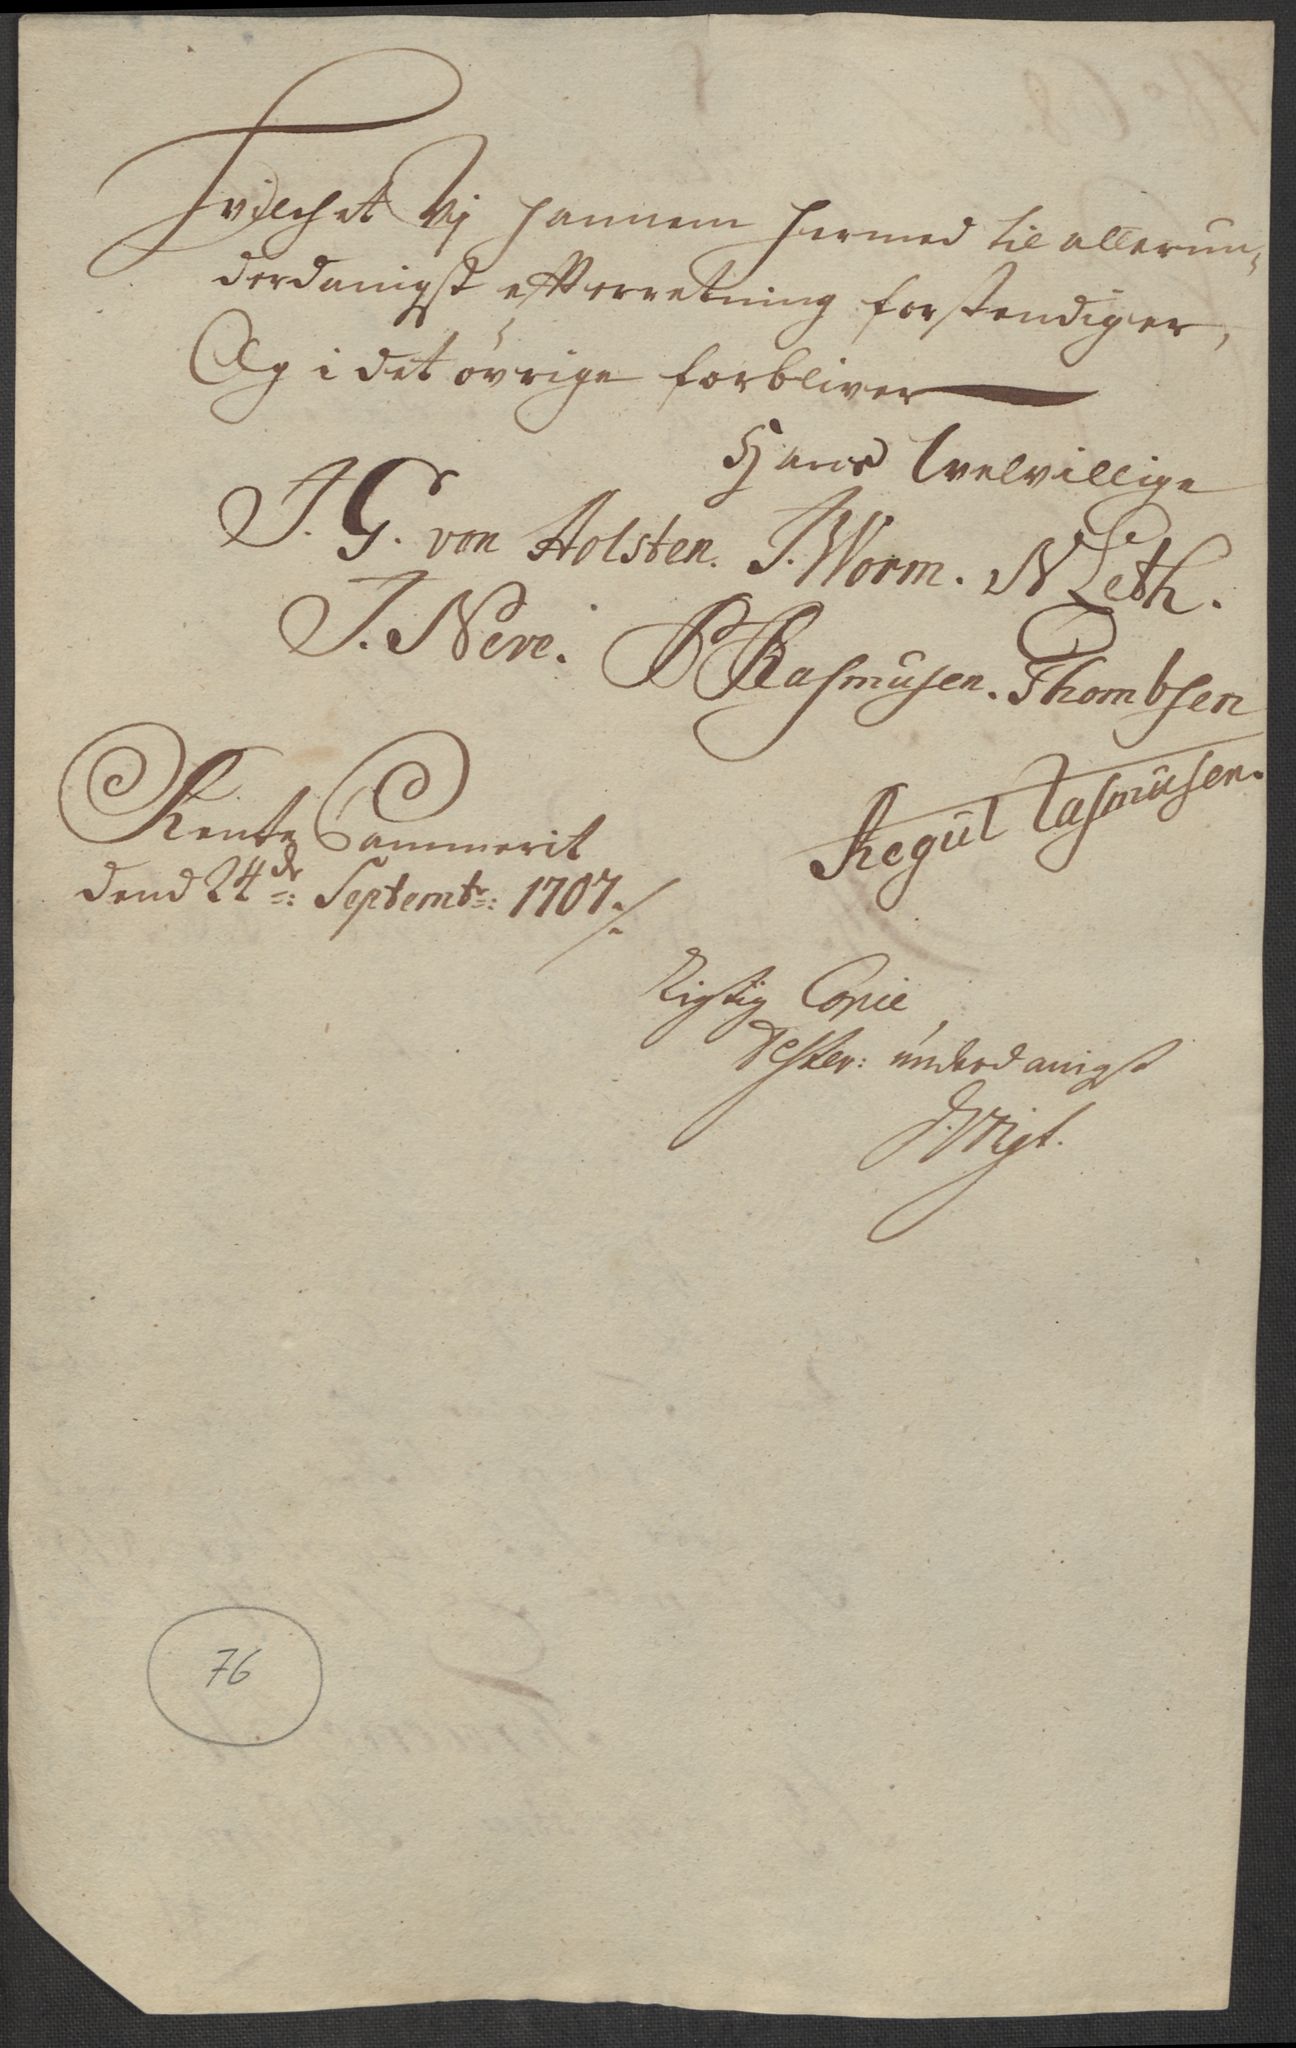 Hvilchet Vj hannem hermed til allerun-
derdanigst effterretning forstendiger,
Og i det övrige forbliver
Hans velvillige
J. G. von Holsten. J. Worm. N Leth.
J. Neve. P Rasmusen. Thombsen
Regül Rasmusen.
Rente Cammerit
dend 24de: Septembr: 1707./.
Rigtig Copie
Tester: ünderdanigst
76